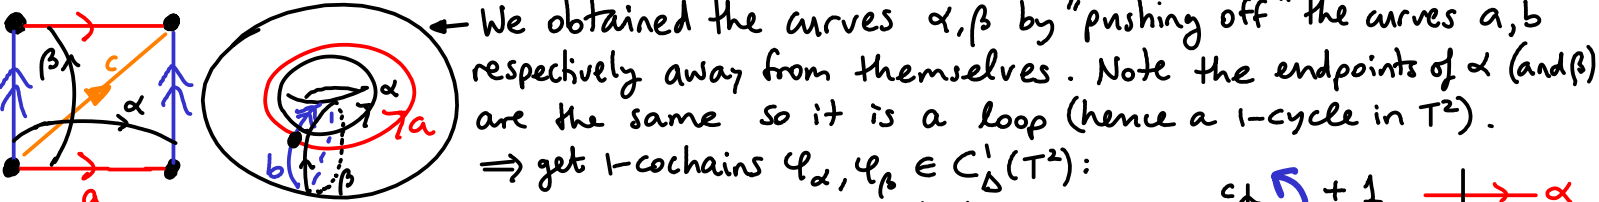 ← We obtained the curves α, β by "pushing off" the curves a, b
respectively away from themselves. Note the endpoints of α (and β)
are the same so it is a loop (hence a 1-cycle in T²).
⇒ get 1-cochains φ_α, φ_β ∈ C¹_Δ(T²):
β
c
α
a
α
a
b
β
+ 1
α